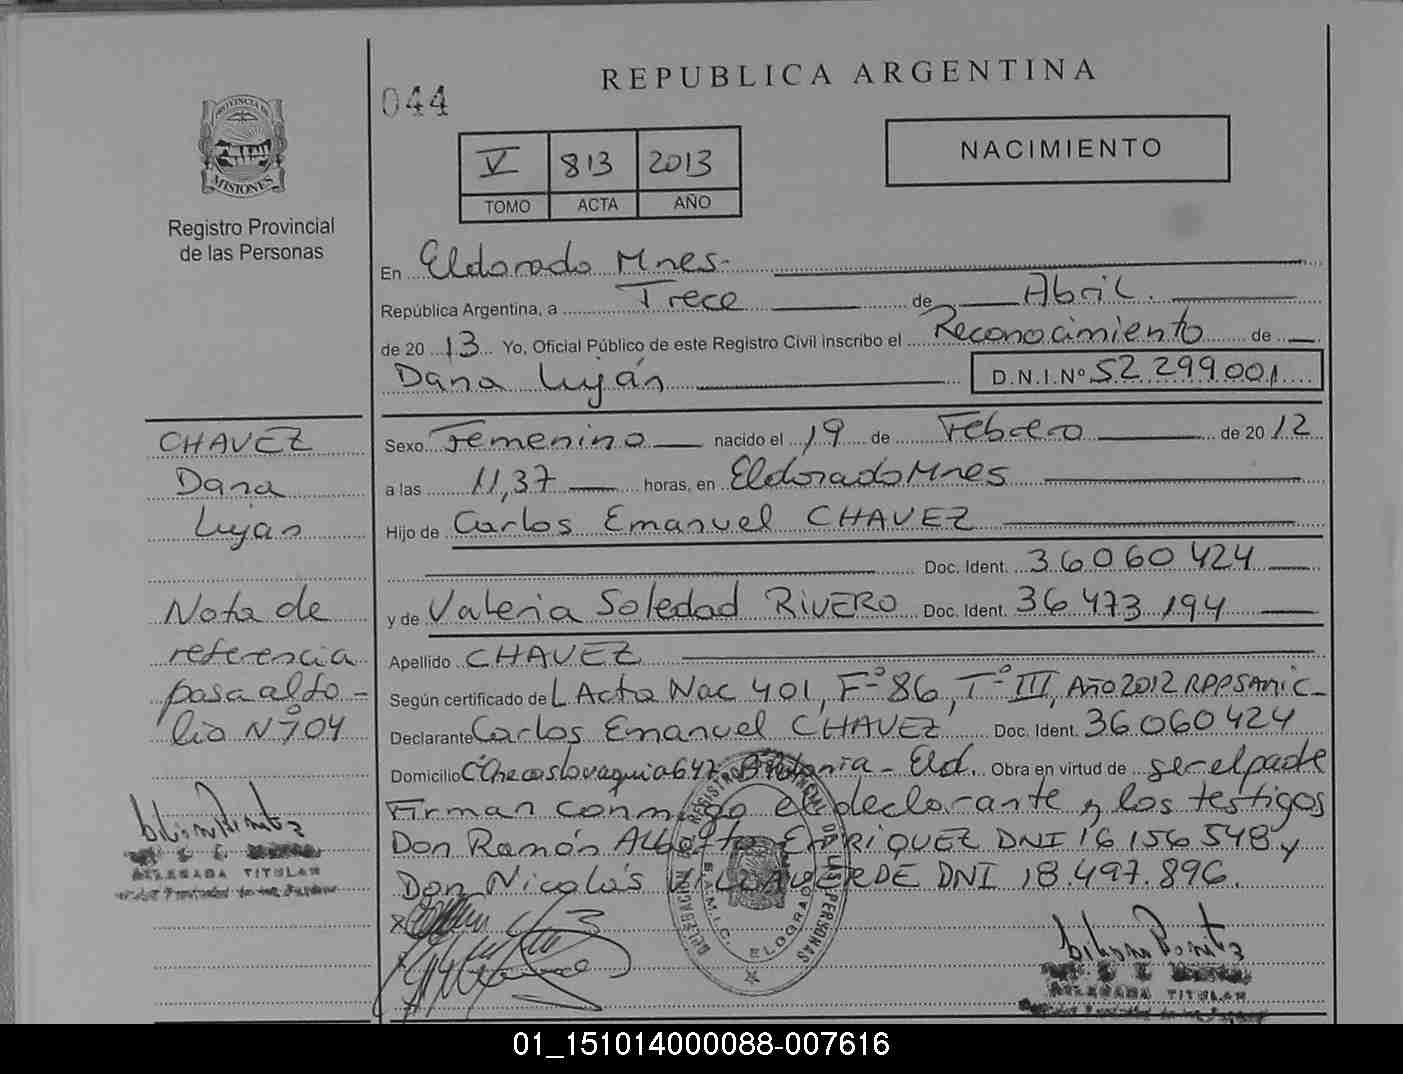 REPUBLICA ARGENTINA
044
NACIMIENTO
V 813 2013
TOMO ACTA AÑO
PROVINCIA DE
MISIONES
Registro Provincial
de las Personas
En Eldorado Mnes.
República Argentina, a Trece de Abril.
de 20 13 Yo, Oficial Público de este Registro Civil inscribo el Reconocimiento de
Dana Luján D.N.I.Nº 52 299001
CHAVEZ
Dana
Luján
Nota de
referencia
pasa al fo-
lio Nº 104
DELEGADA TITULAR
Sexo Femenino nacido el 19 de Febrero de 20 12
a las 11,37 horas, en Eldorado Mnes
Hijo de Carlos Emanuel CHAVEZ
Doc. Ident. 36060424
y de Valeria Soledad RIVERO Doc. Ident. 36 473 194
Apellido CHAVEZ
Según certificado de L Acta Nac 401, Fº 86, Tº III, Año 2012 RPPSAMIC-
Declarante Carlos Emanuel CHAVEZ Doc. Ident. 36060424
Domicilio C Checoslovaquia 647 - Eld. Obra en virtud de ser el padre
Firman conmigo el declarante y los testigos
Don Ramón Alberto ENRIQUEZ DNI 16 156 548 y
Don Nicolás VILLAVERDE DNI 18.497.896.
DELEGACION DEL REGISTRO PROVINCIAL DE LAS PERSONAS
S.A.M.I.C. ELDORADO
DELEGADA TITULAR
01_151014000088-007616